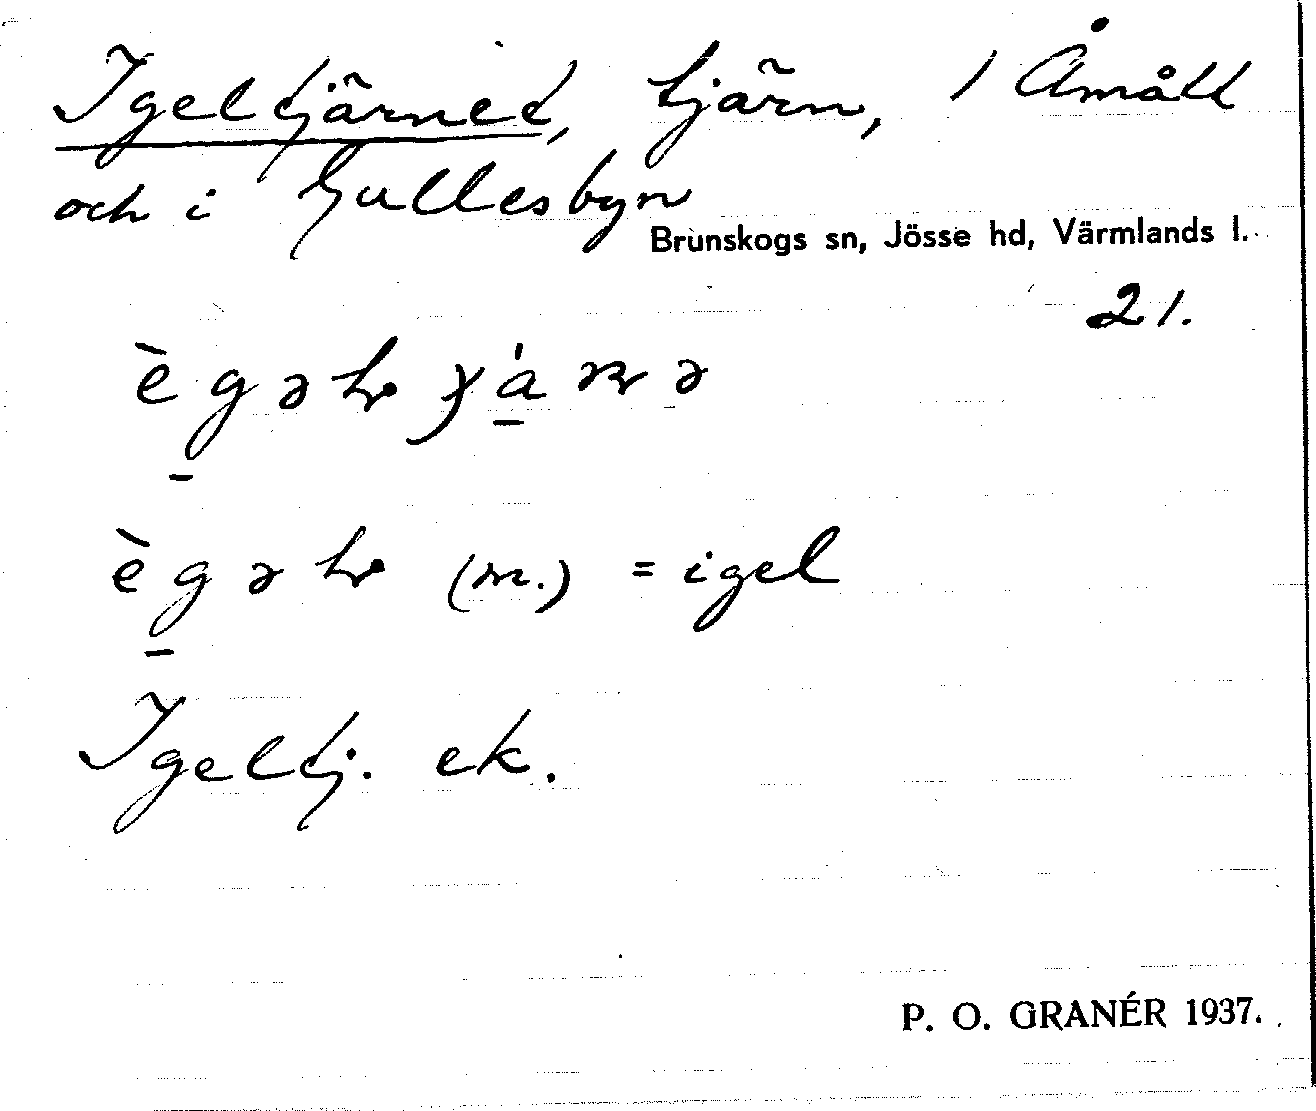 Igeltjärnet, tjärn, i Åmått
och i Gullesbyn
Brunskogs sn, Jösse hd, Värmlands l.
21.
(m.) = igel
Igeltj. ek.
P. O. GRANÉR 1937.